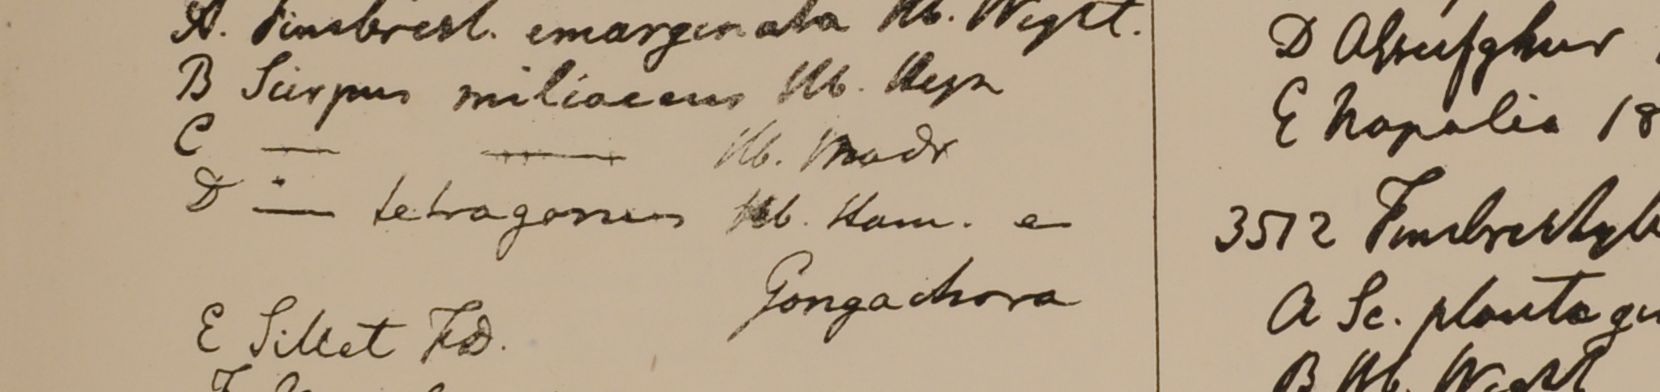 A. Fimbrist. emarginata Hb. Wight.
B Scirpus miliaceus Hb. Heyn
C — — Hb. Madr
D — tetragonus Hb. Ham. e
Gongachora
E Sillet F.D.
D
E Napalia 18
3512 Fimbristyl
A Sc. plantagi
B Hb. Wight